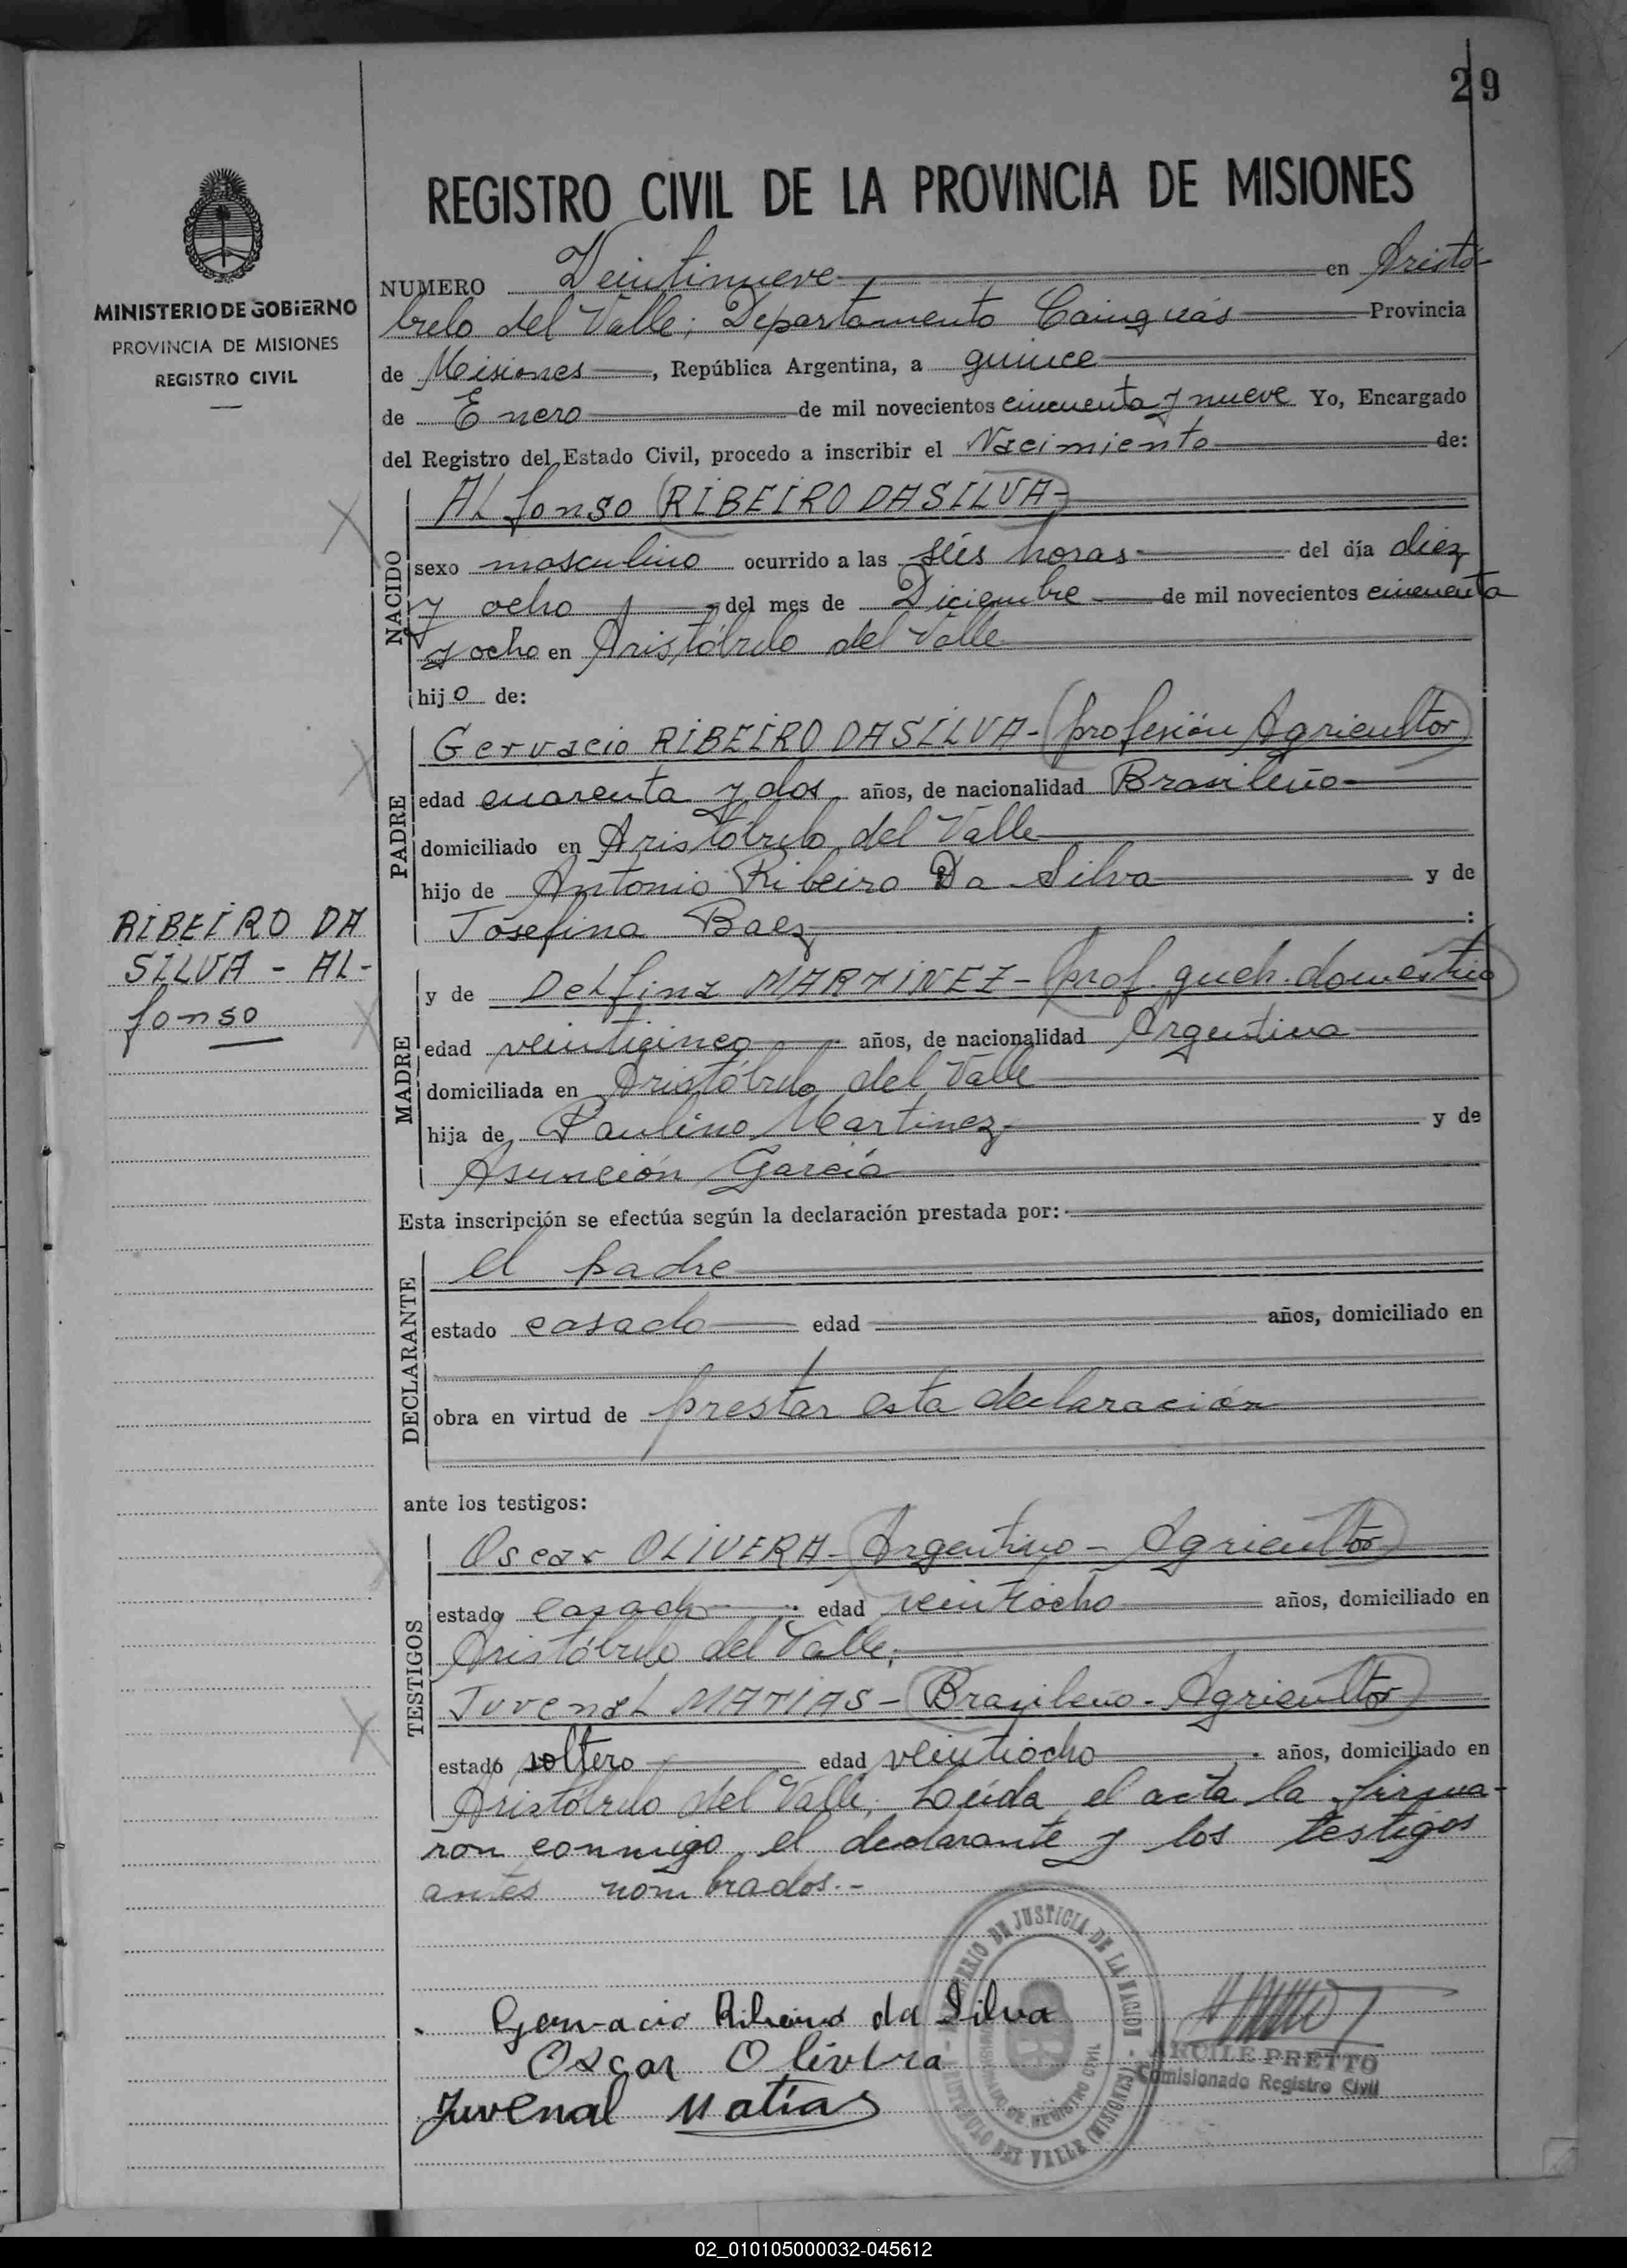 29
REGISTRO CIVIL DE LA PROVINCIA DE MISIONES
MINISTERIO DE GOBIERNO
PROVINCIA DE MISIONES
REGISTRO CIVIL
NUMERO Veintinueve en Aristó-
bulo del Valle; Departamento Cainguás Provincia
de Misiones, República Argentina, a quince
de Enero de mil novecientos cincuenta y nueve Yo, Encargado
del Registro del Estado Civil, procedo a inscribir el Nacimiento de:
NACIDO
ALfonso (RIBEIRO DA SILVA-)
sexo masculino ocurrido a las séis horas del día diez
y ocho del mes de Diciembre de mil novecientos cincuenta
y ocho en Aristóbulo del Valle
hijo de:
PADRE
Gervacio RIBEIRO DA SILVA- (profesión Agricultor)
edad cuarenta y dos años, de nacionalidad Brasileño-
domiciliado en Aristóbulo del Valle
hijo de Antonio Ribeiro Da Silva y de
Josefina Baez :
RIBEIRO DA
SILVA - AL-
fonso
MADRE
y de DeLfina MARTINEZ- (prof. queh. domestico)
edad veinticinco años, de nacionalidad Argentina
domiciliada en Aristóbulo del Valle
hija de Paulino Martinez y de
Asunción García
Esta inscripción se efectúa según la declaración prestada por:
DECLARANTE
el padre
estado casado edad años, domiciliado en
obra en virtud de prestar esta declaración
ante los testigos:
TESTIGOS
Oscar OLIVERA- (Argentino - Agricultor)
estado casado edad veintiocho años, domiciliado en
Aristóbulo del Valle;
JuvenaL MATIAS- (Brasileño - Agricultor)
estado soltero edad veintiocho años, domiciliado en
Aristóbulo del Valle; Leída el acta la firma-
ron conmigo el declarante y los testigos
antes nombrados.-
Gervacio Ribeiro da Silva
Oscar Olivera
Juvenal Matías
MINISTERIO DE JUSTICIA DE LA NACION - ARISTOBULO DEL VALLE (MISIONES)
DE REGISTRO CIVIL
ARCILE PRETTO
Comisionado Registro Civil
02_010105000032-045612